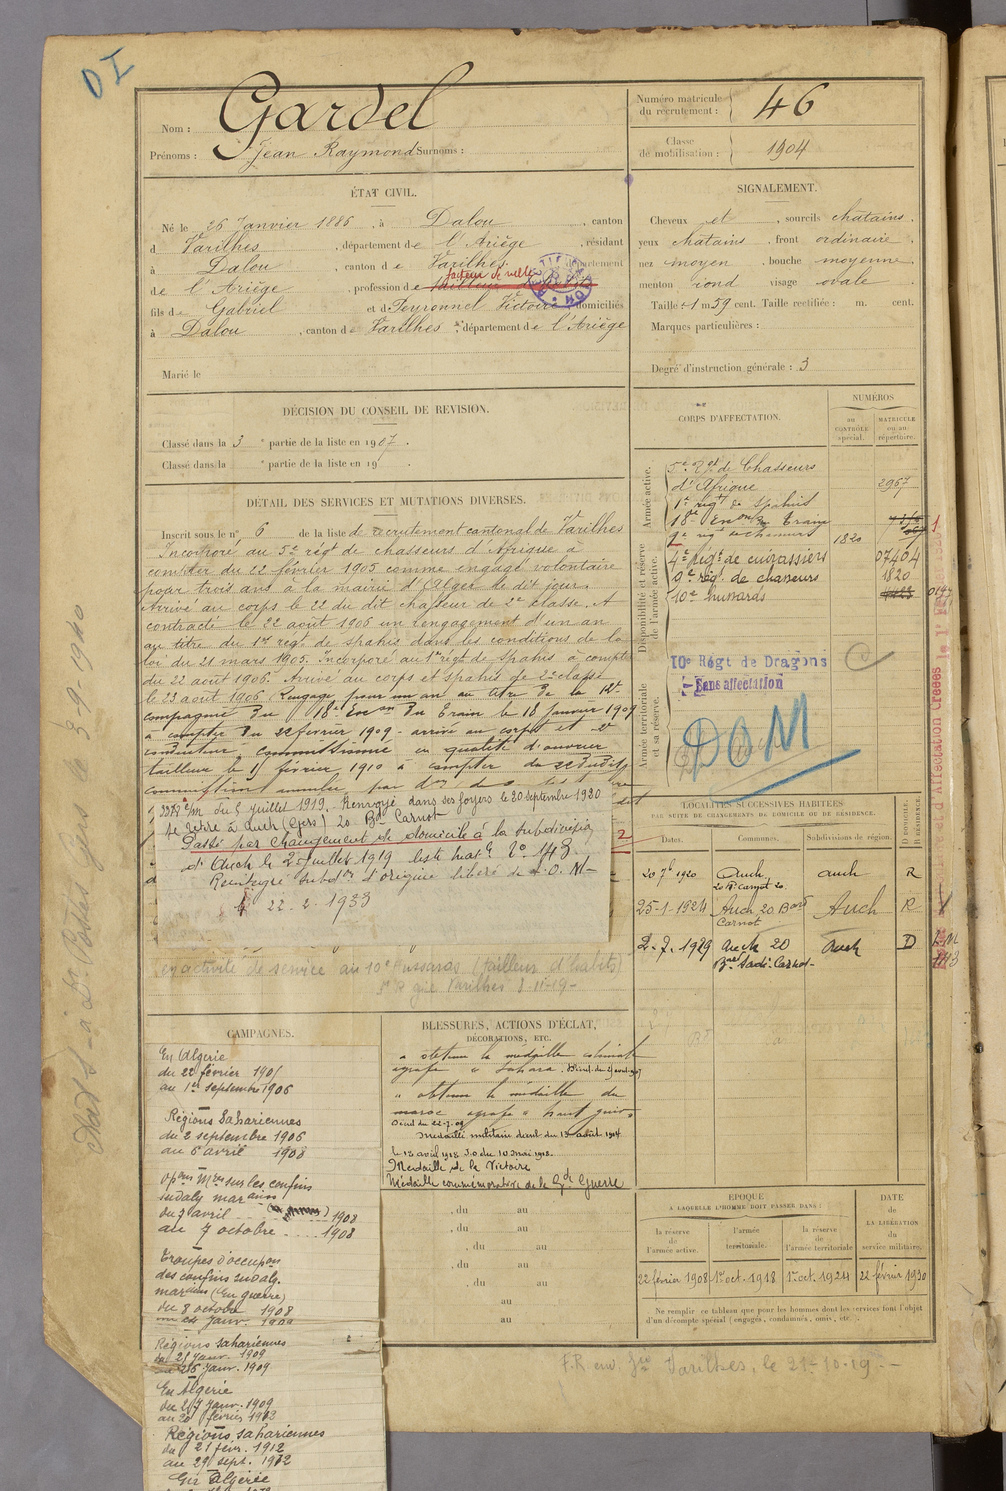 DI
Nom : Gardel
Prénoms : Jean Raymond Surnoms :
Numéro matricule du recrutement : 46
Classe de mobilisation : 1904
ÉTAT CIVIL.
Né le 26 Janvier 1886, à Dalou, canton
d Varilhes, département de l'Ariège, résidant
à Dalou, canton de Varilhes, département
facteur de ville
de l'Ariège, profession de
fils de Gabriel et de Peyronnel Victoire domiciliés
à Dalou, canton de Varilhes, département de l'Ariège
Marié le
SIGNALEMENT.
Cheveux et, sourcils chatains.
yeux chatains, front ordinaire
nez moyen, bouche moyenne
menton rond visage ovale.
Taille : 1 m 59 cent. Taille rectifiée : m. cent.
Marques particulières :
Degré d'instruction générale : 3
DÉCISION DU CONSEIL DE REVISION.
Classé dans la 3e partie de la liste en 1907.
Classé dans la e partie de la liste en 19 .
DÉTAIL DES SERVICES ET MUTATIONS DIVERSES.
Inscrit sous le n° 6 de la liste de recrutement cantonal de Varilhes
Incorporé au 5e régt de chasseurs d'Afrique à
compter du 22 février 1905 comme engagé volontaire
pour trois ans à la mairie d'Alger le dit jour.
Arrivé au corps le 22 du dit chasseur de 2e classe. A
contracté le 22 août 1906 un rengagement d'un an
au titre du 1er régt de spahis dans les conditions de la
loi du 21 mars 1905. Incorporé au 1er régt de Spahis à compter
du 22 août 1906. Arrivé au corps et spahis de 2e classe
le 23 août 1906. Rengagé pour un an au titre de la 12e
compagnie du 18e Escon du Train le 18 Janvier 1909
à compter du 22 février 1909 - arrivé au corps et 2e
conducteur commissionné en qualité d'ouvrier
tailleur le 15 février 1910 à compter du 22 dudit
du 5 juillet 1919. Renvoyé dans ses foyers le 20 septembre 1920
se retire à Auch (Gers) 20 Bd Carnot
Passé par changement de domicile à la subdivision
d'Auch le 2 juillet 1919 liste mat.
Réintégré subdon d'origine libéré de s. O. M-
22-2-1933
en activité de service au 10e Hussards (tailleur d'habits)
Varilhes 8-11-19-
CORPS D'AFFECTATION.
NUMÉROS
au CONTRÔLE spécial.
MATRICULE ou au répertoire.
Armée active.
5e Rgt de Chasseurs
d'Afrique 2967
1er régt de Spahis
18e Escon du Train
Disponibilité et réserve de l'armée active.
1820
4e Régt de cuirassiers 07404
9e régt de chasseurs 1820
10e hussards
Armée territoriale et sa réserve.
10e Régt de Dragons
Sans affectation
DOM
LOCALITÉS SUCCESSIVES HABITÉES
PAR SUITE DE CHANGEMENTS DE DOMICILE OU DE RÉSIDENCE.
Dates. Communes. Subdivisions de région. D. DOMICILE. R. RÉSIDENCE.
20 7b 1920 Auch 20 Bd Carnot 20 Auch R
25-1-1924 Auch 20 Bard Carnot Auch R
2-7-1929 Auch 20 Bard Sadi-Carnot- Auch D
CAMPAGNES.
En Algérie
du 22 février 1905
au 1er septembre 1906
Régions Sahariennes
du 2 septembre 1906
au 6 avril 1908
Opons Mres sur les confins
sud alg marocains
du 7 avril 1908
au 7 octobre 1908
Troupes d'occupon
des confins sud alg.
marocains (En guerre)
du 8 octobre 1908
au 24 janv. 1909
Régions sahariennes
du 25 janv. 1909
au 26 janv. 1909
En Algérie
du 27 Janv. 1909
au 20 février 1912
Régions sahariennes
du 21 févr. 1912
au 29 sept. 1912
En Algérie
BLESSURES, ACTIONS D'ÉCLAT,
DÉCORATIONS, ETC.
a obtenu la médaille coloniale
agrafe "Sahara".
a obtenu la médaille du
Maroc agrafe "haut guir"
Médaille militaire décret du 13 août 1914
le 18 avril 1918 J.O du 10 mai 1918.
Médaille de la Victoire
Médaille commémorative de la Gde Guerre
, du au
, du au
, du au
, du au
, du au
au
au
ÉPOQUE
A LAQUELLE L'HOMME DOIT PASSER DANS :
la réserve de l'armée active.
l'armée territoriale.
la réserve de l'armée territoriale
DATE de LA LIBÉRATION du service militaire.
22 février 1908 1er oct. 1918 1er oct. 1924 22 février 1930
Ne remplir ce tableau que pour les hommes dont les services font l'objet
d'un décompte spécial (engagés, condamnés, omis, etc.
F.R. env. Gie Varilhes, le 21-10-19.-